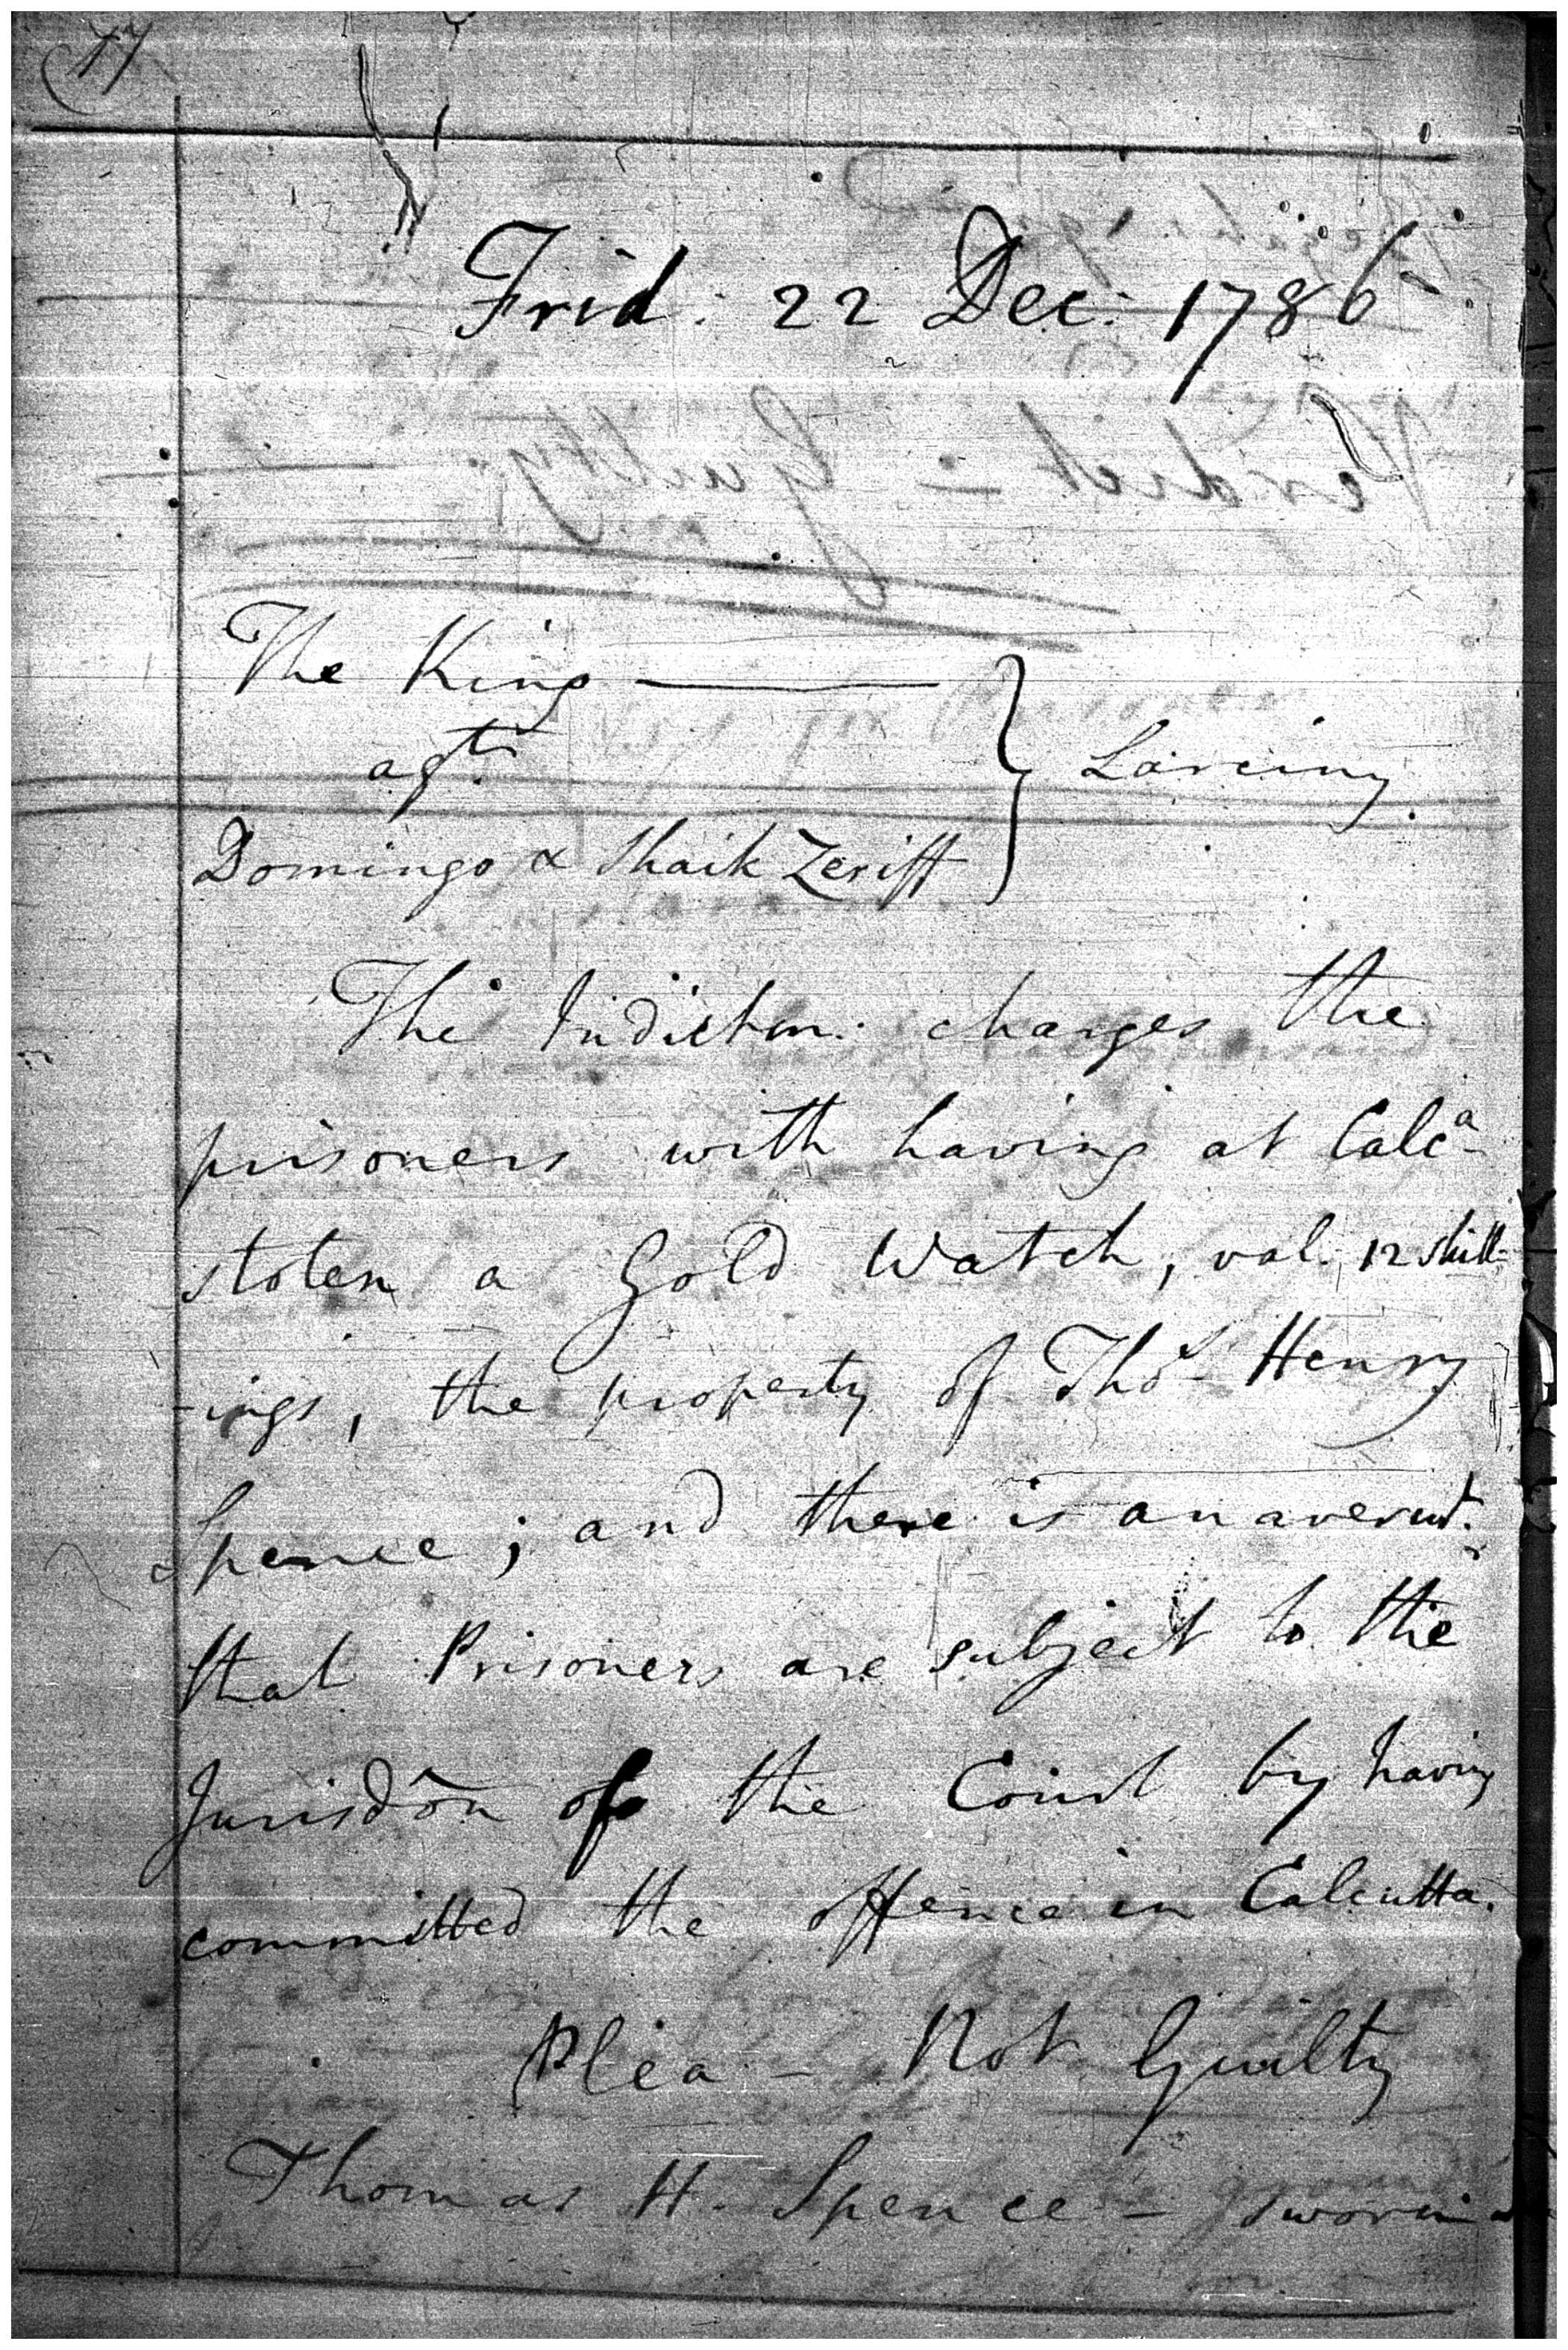 47
Frid. 22 Dec. 1786
The King
agt.
Domingo & Shaik Zeriff } Larciny.
The Indictm. charges the
prisoners with having at Calca
stolen a Gold Watch, val. 12 shill-
-ings, the property of Thos Henry
Spence; and there is an avermt.
that Prisoners are subject to the
Jurisdon of the Court by having
committed the offence in Calcutta.
Plea - Not Guilty
Thomas H. Spence - sworn